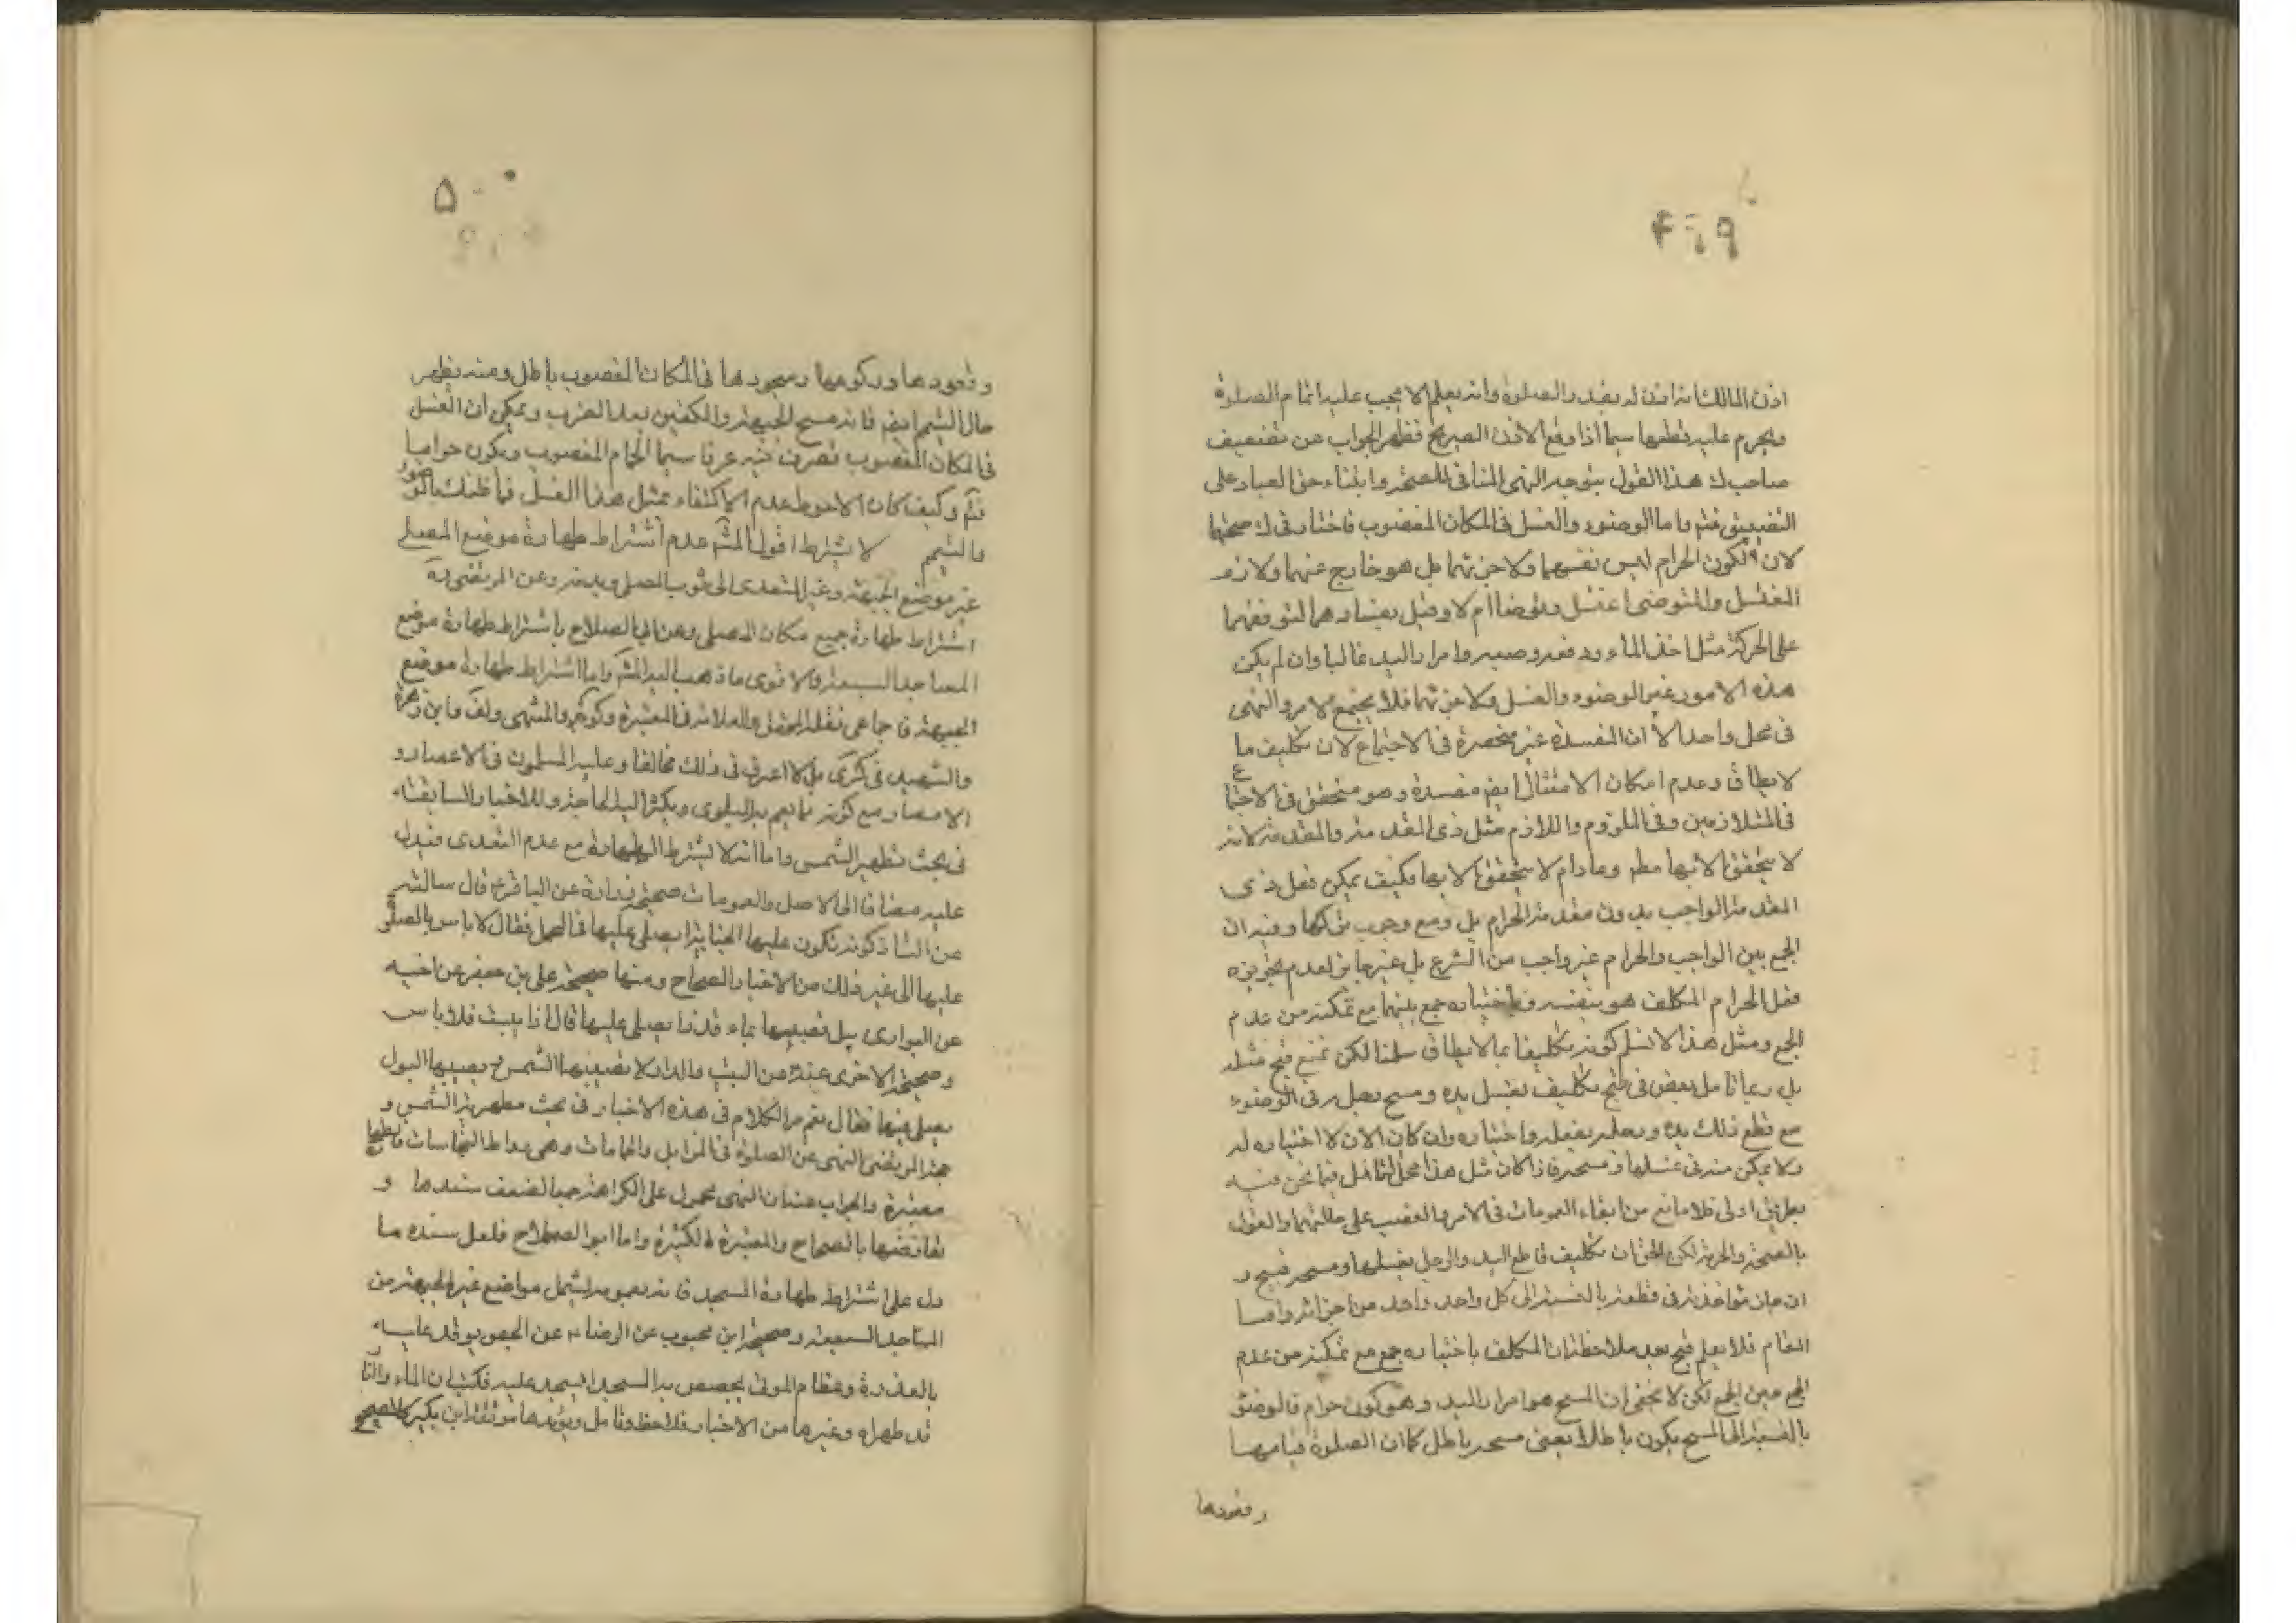 ۴۹۹
اذن المالك
ويحرم عليه قطعها سيما اذا وقع الاذن الصريح فظهر الجواب عن تضعيف
صاحب ك هذا القول بتوجه النهى المنافى للصحة وابتناء حق العباد على
التضييق فتم واما الوضوء والغسل فى المكان المغصوب فاختار فى ك صحتها
لان الكون الحرام ليس نفسهما ولا جزئهما بل هو خارج عنهما ولازم
المغتسل والمتوضى اغتسل وتوضأ ام لا وقيل بفسادهما لتوقفهما
على الحركة مثل اخذ الماء ورفعه وصبه وامرار اليد غالبا وان لم يكن
هذه الامور غير الوضوء والغسل ولا جزئهما فلا يجتمع الامر والنهى
فى محل واحد الا ان المفسدة غير منحصرة فى الاجتماع لان تكليف ما
لا يطاق وعدم امكان الامتثال ايضا مفسدة وهو متحقق فى الاجتماع
فى المتلازمين وفى الملزوم واللازم مثل ذى المقدمة والمقدمة لانه
لا يتحقق الا بها مطم وما دام لا يتحقق الا بها فكيف يمكن فعل ذى
المقدمة الواجب بدون مقدمة الحرام بل ومع وجوب تركها وفيه ان
الجمع بين الواجب والحرام غير واجب من الشرع بل غير جايز لعدم تجويزه
فعل الحرام المكلف هو بنفسه وباختياره جمع بينهما مع تمكنه من عدم
الجمع ومثل هذا لا نسلم كونه تكليفا بما لا يطاق سلمنا لكن نمنع قبح مثله
بل ربما تامل بعض فى قبح تكليف بغسل يده ومسح رجله فى الوضوء
مع قطع ذلك يده ورجله بفعله واختياره وان كان الان لا اختيار له
ولا يمكن منه غسلها ومسحه فاذا كان مثل هذا محل التامل فيما نحن فيه
بطريق اولى فلا مانع من ابقاء العمومات فى الامر والغصب على حالتهما والقول
بالصحة والحرمة لكن الحق ان تكليف قاطع اليد والرجل بغسلها ومسحه قبيح و
ان جاز مؤاخذته فى قطعه بالنسبة الى كل واحد واحد من اجزائه واما
المقام فلا يعلم قبح بعد ملاحظة ان المكلف باختياره جمع مع تمكنه من عدم
الجمع حين الجمع لكن لا يخفى ان المسح هو امرار اليد وهو كون حرام فالوضوء
بالنسبة الى المسح يكون باطلا يعنى مسحه باطل كما ان الصلوة قيامها
وقعودها
۵۰۰
وقعودها وركوعها وسجودها فى المكان المغصوب باطل ومنه يظهر
حال التيمم ايضا فانه مسح الجبهة والكفين بعد الضرب ويمكن ان الغسل
فى المكان المغصوب تصرف فيه عرفا سيما الحمام المغصوب ويكون حراما
فتم وكيف كان الاحوط عدم الاكتفاء بمثل هذا الغسل فما ظنك بالوضوء
والتيمم لا يشترط اقول المشهور عدم اشتراط طهارة موضع المصلى
غير موضع الجبهة وغير المتعدى الى ثوب المصلى وبدنه وعن المرتضى ره
اشتراط طهارة جميع مكان المصلى وعن ابى الصلاح باشتراط طهارة موضع
المساجد السبعة والاقوى ما ذهب اليه المشهور واما اشتراط طهارة موضع
الجبهة فاجماعى نقله المحقق والعلامة فى المعتبر وكرة والمنتهى ولف وابن زهرة
والشهيد فى كرى بل لا اعرف فى ذلك مخالفا وعليه المسلمون فى الاعصار و
الامصار مع كونه مما يعم به البلوى ويكثر اليه الحاجة وللاخبار السابقة
فى بحث تطهير الشمس واما انه لا يشترط الطهارة مع عدم التعدى فيدل
عليه مضافا الى الاصل والعمومات صحيحة زرارة عن الباقر ع قال سألته
عن الشاذكونة تكون عليها الجنابة ايصلى عليها فى المحمل فقال لا باس بالصلوة
عليها الى غير ذلك من الاخبار الصحاح ومنها صحيحة على بن جعفر عن اخيه
عن البوارى يبل قصبها بماء قذر ايصلى عليها قال اذا يبست فلا باس
وصحيحة الاخرى عنه عن البيت والدار لا تصيبهما الشمس يصيبها البول
يصلى فيها فقال نعم مر الكلام فى هذه الاخبار فى بحث مطهرية الشمس و
حجة المرتضى النهى عن الصلوة فى المزابل والحمامات وهى مواطن النجاسات
معتبرة والجواب عنه ان النهى محمول على الكراهة جمعا لضعف سندها و
تعارضها بالصحاح والمعتبرة الكثيرة واما ابو الصلاح فلعل سنده ما
دل على اشتراط طهارة المسجد فانه بعمومه يشمل مواضع غير الجبهة من
المساجد السبعة وصحيحة ابن محبوب عن الرضا ع عن الجص يوقد عليه
بالعذرة وعظام الموتى يجصص به المسجد ايسجد عليه فكتب ان الماء والنار
قد طهراه وغيرها من الاخبار فلاحظ وتامل ويؤيدها موثقة ابن بكير